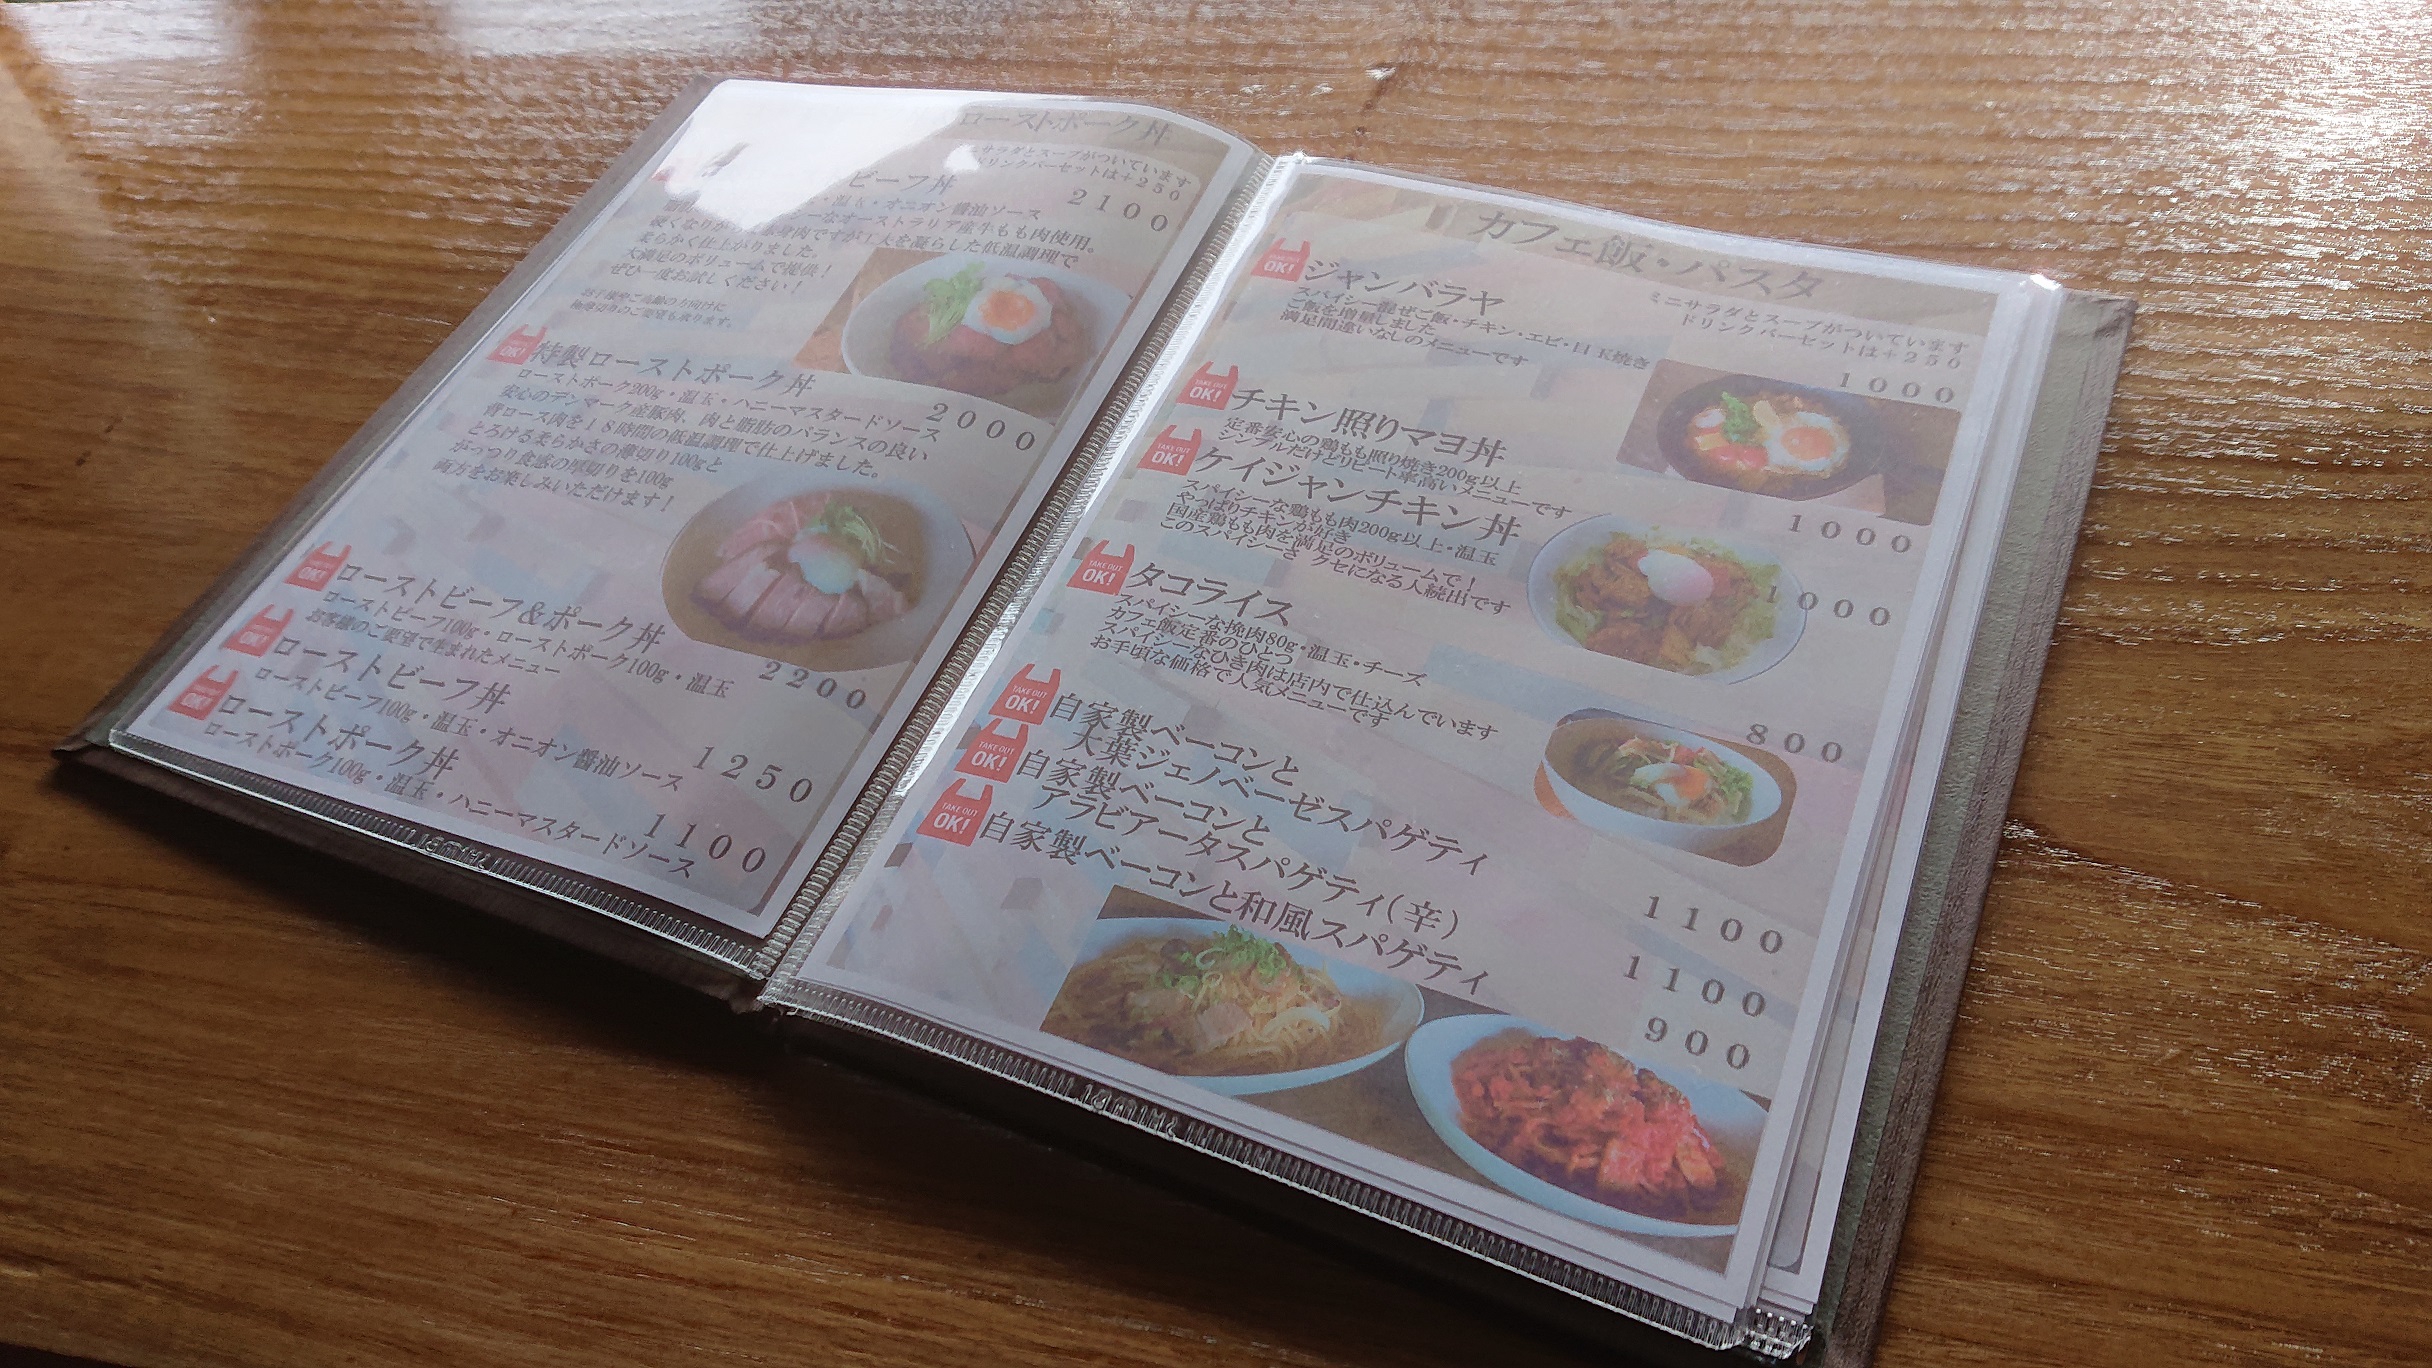 ローストポーク丼
ミニサラダとスープがついています
ドリンクバーセットは+250
ビーフ丼
2100
・温玉・オニオン醤油ソース
シーなオーストラリア産牛もも肉使用。
硬くなりが 赤身肉ですが工夫を凝らした低温調理で
柔らかく仕上がりました。
大満足のボリュームで提供!
ぜひ一度お試しください!
お子様やご高齢の方向けに
極薄切りのご要望も承ります。
OK!
特製ローストポーク丼
2000
ローストポーク200g・温玉・ハニーマスタードソース
安心のデンマーク産豚肉、肉と脂肪のバランスの良い
背ロース肉を18時間の低温調理で仕上げました。
とろける柔らかさの薄切り100gと
がっつり食感の厚切りを100g
両方をお楽しみいただけます!
TAKE OUT
OK!
ローストビーフ&ポーク丼
2200
ローストビーフ100g・ローストポーク100g・温玉
お客様のご要望で生まれたメニュー
OK!
ローストビーフ丼
1250
ローストビーフ100g・温玉・オニオン醤油ソース
OK!
ローストポーク丼
1100
ローストポーク100g・温玉・ハニーマスタードソース
カフェ飯・パスタ
ミニサラダとスープがついています
ドリンクバーセットは+250
TAKE OUT
OK!
ジャンバラヤ
1000
スパイシー混ぜご飯・チキン・エビ・目玉焼き
ご飯を増量しました
満足間違いなしのメニューです
TAKE OUT
OK!
チキン照りマヨ丼
1000
定番安心の鶏もも照り焼き200g以上
シンプルだけどリピート率高いメニューです
TAKE OUT
OK!
ケイジャンチキン丼
1000
スパイシーな鶏もも肉200g以上・温玉
やっぱりチキンが好き
国産鶏もも肉を満足のボリュームで!
このスパイシーさ クセになる人続出です
TAKE OUT
OK!
タコライス
800
スパイシーな挽肉80g・温玉・チーズ
カフェ飯定番のひとつ
スパイシーなひき肉は店内で仕込んでいます
お手頃な価格で人気メニューです
TAKE OUT
OK!
自家製ベーコンと
大葉ジェノベーゼスパゲティ
1100
TAKE OUT
OK!
自家製ベーコンと
アラビアータスパゲティ(辛)
1100
TAKE OUT
OK!
自家製ベーコンと和風スパゲティ
900